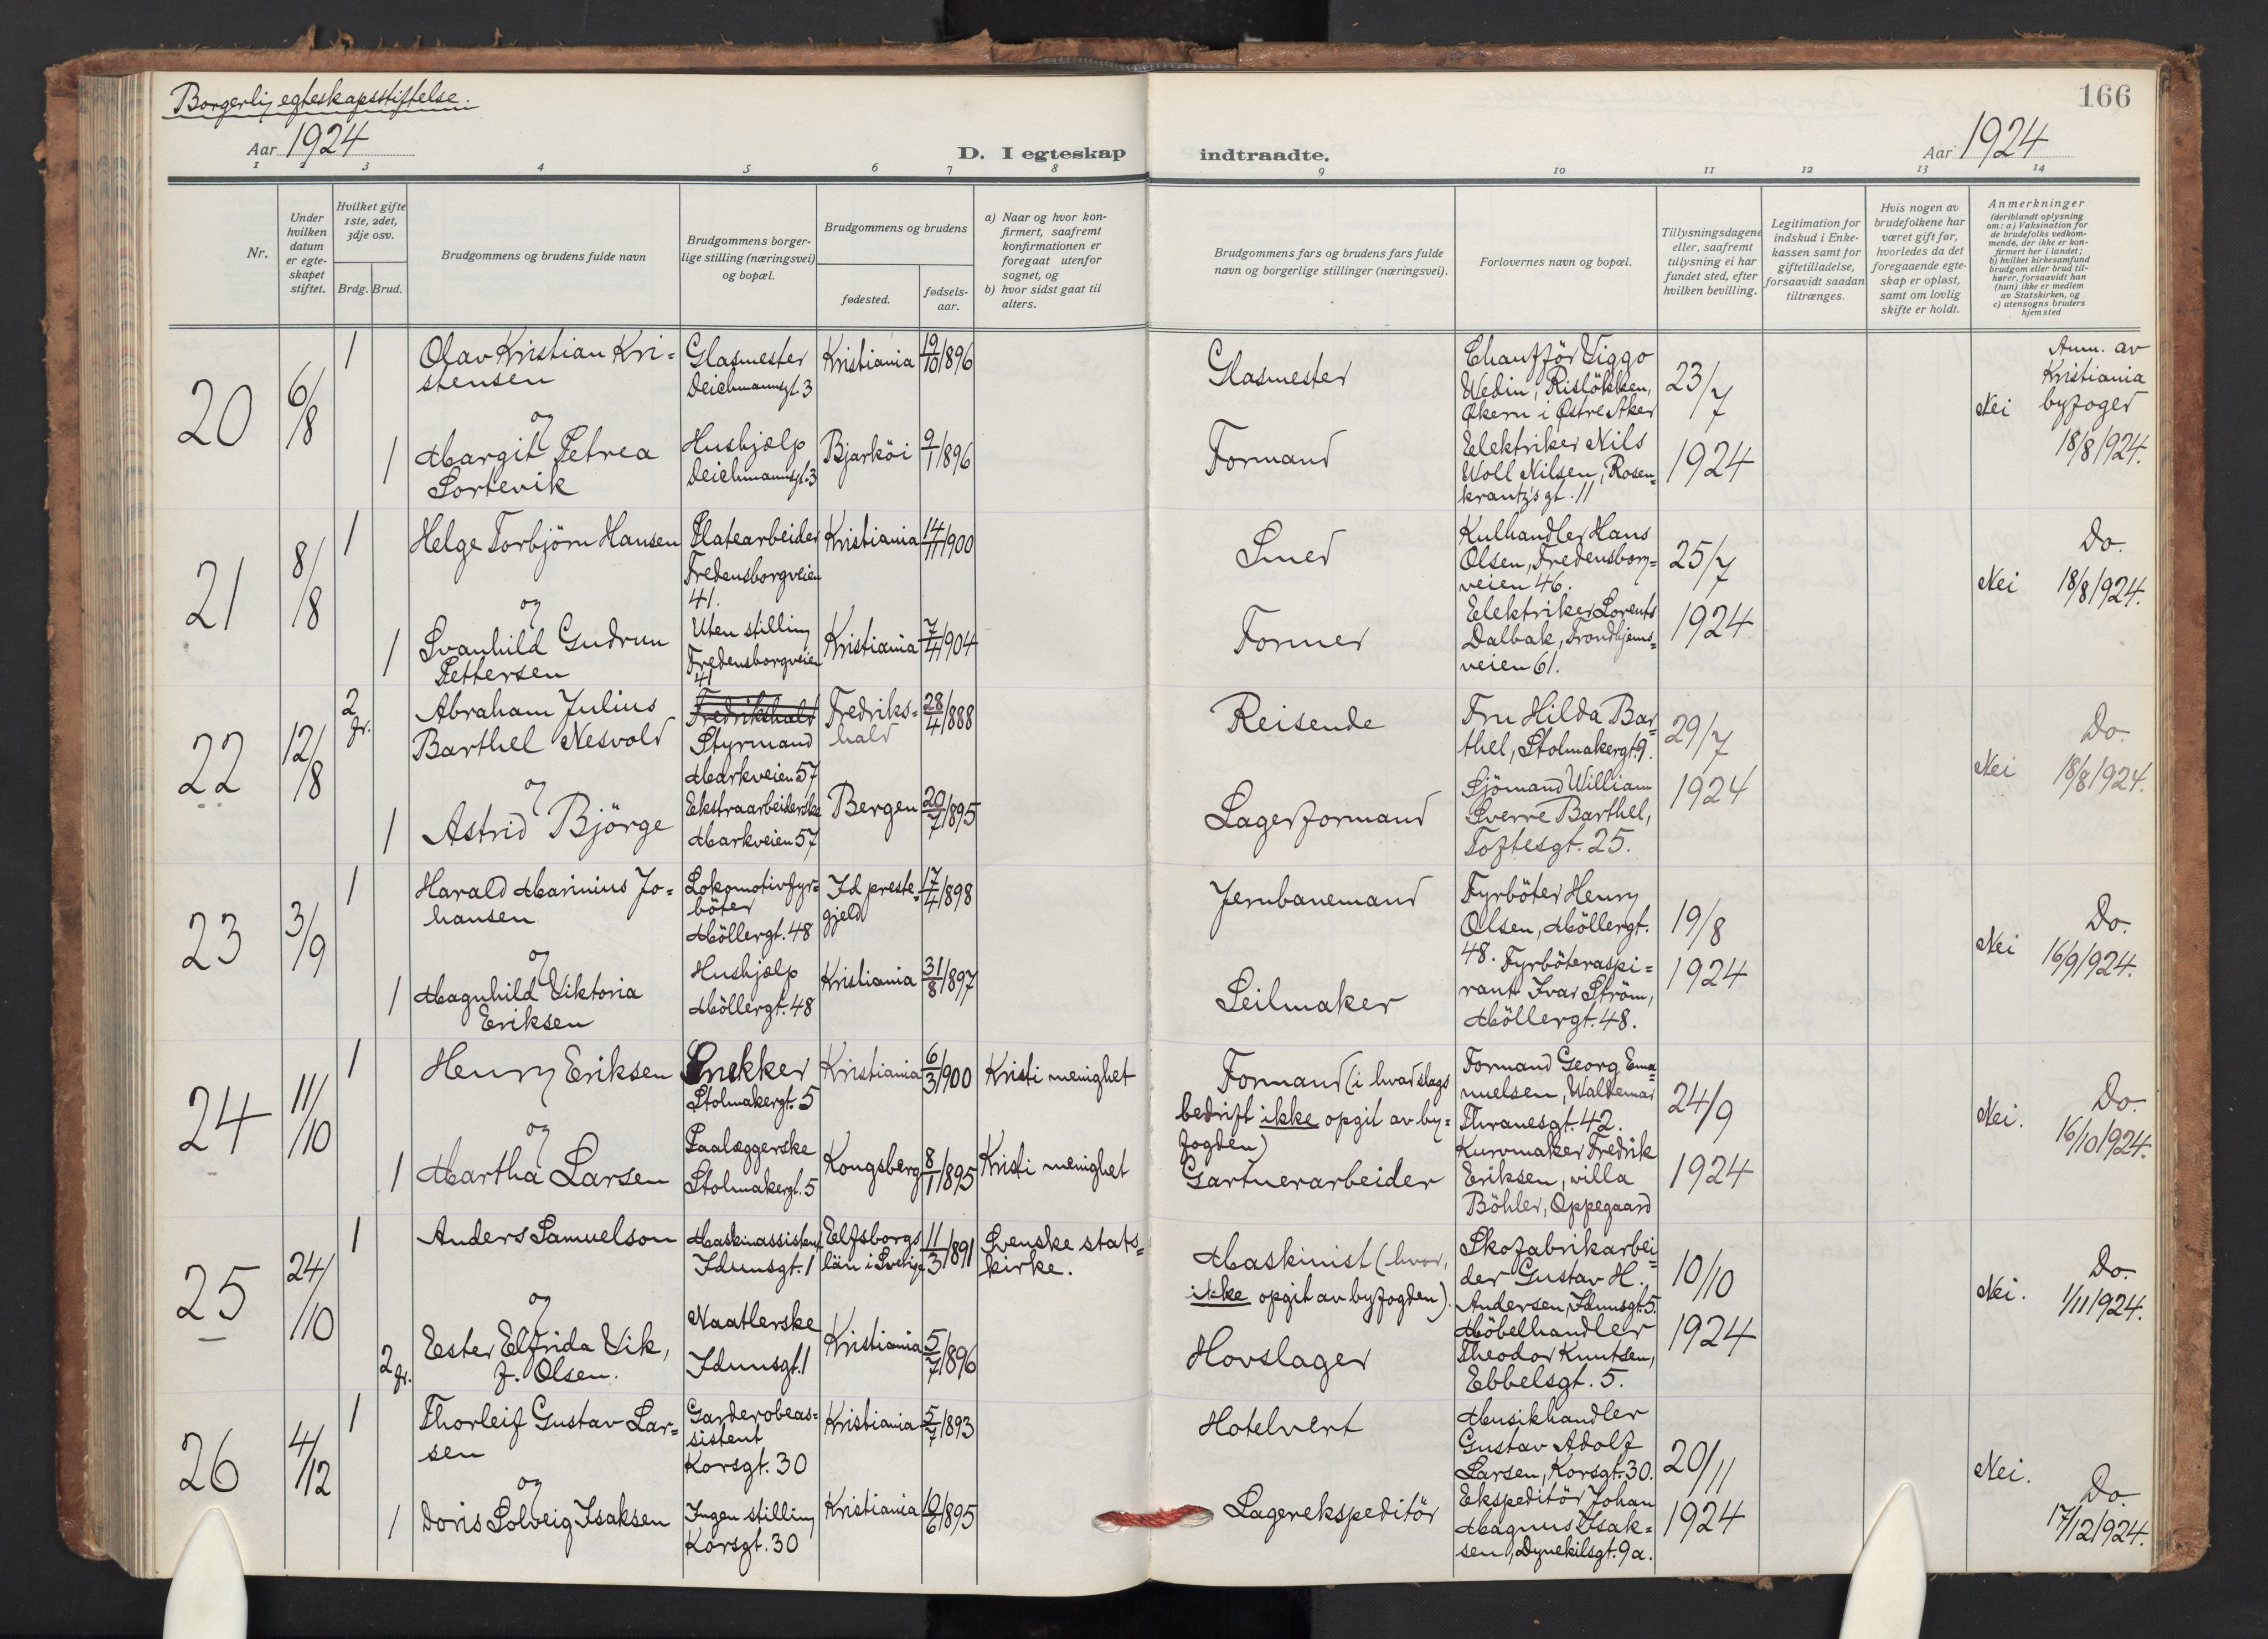 Borgerlig egteskapsstiftelse.
Aar 1924
D. I egteskap indtraadte.
166
Aar 1924
1 2 3 4 5 6 7 8 9 10 11 12 13 14
Nr.
Under hvilken datum er egteskapet stiftet.
Hvilket gifte 1ste, 2det, 3dje osv.
Brdg. Brud.
Brudgommens og brudens fulde navn
Brudgommens borgerlige stilling (næringsvei) og bopæl.
Brudgommens og brudens
fødested.
fødselsaar.
a) Naar og hvor konfirmert, saafremt konfirmationen er foregaat utenfor sognet, og
b) hvor sidst gaat til alters.
Brudgommens fars og brudens fars fulde navn og borgerlige stillinger (næringsvei).
Forlovernes navn og bopæl.
Tillysningsdagene eller, saafremt tillysning ei har fundet sted, efter hvilken bevilling.
Legitimation for indskud i Enkekassen samt for giftetilladelse, forsaavidt saadan tiltrænges.
Hvis nogen av brudefolkene har været gift før, hvorledes da det foregaaende egteskap er opløst, samt om lovlig skifte er holdt.
Anmerkninger
(deriblandt oplysning om: a) Vaksination for de brudefolks vedkommende, der ikke er konfirmert her i landet; b) hvilket kirkesamfund brudgom eller brud tilhører, forsaavidt han (hun) ikke er medlem av Statskirken, og c) utensogns bruders hjemsted
20
6/8
1
Olav Kristian Kri=
stensen
Glasmester
Deichmannsgt. 3
Kristiania
19/10 1896
Glasmester
Chauffør Viggo
Wedin, Risløkken,
Økern i Østre Aker
23/7
Nei
Anm. av
Kristiania
byfoged
18/8 1924.
og
1
Margit Petrea
Sortevik
Hushjælp
Deichmannsgt. 3
Bjarköi
9/1 1896
Formand
Elektriker Nils
Woll Nilsen, Rosen=
krantz's gt. 11
1924
21
8/8
1
Helge Torbjörn Hansen
Platearbeider
Fredensborgveien
41.
Kristiania
14/11 1900
Smed
Kulhandler Hans
Olsen, Fredensborg=
veien 46.
25/7
Nei
Do.
18/8 1924.
og
1
Svanhild Gudrun
Pettersen
Uten stilling
Fredensborgveien
41
Kristiania
7/4 1904
Former
Elektriker Lorents
Dalbak, Trondhjems=
veien 61.
1924
22
12/8
2 fr.
Abraham Julius
Barthel Nesvold
Fredrikshald
Styrmand
Markveien 57
Fredriks=
hald
28/4 1888
Reisende
Fru Hilda Bar=
thel, Stolmakergt. 9.
29/7
Nei
Do.
18/8 1924.
og
1
Astrid Björge
Ekstraarbeiderske
Markveien 57
Bergen
20/7 1895
Lagerformand
Sjömand William
Sverre Barthel,
Toftesgt. 25.
1924
23
3/9
1
Harald Marinius Jo=
hansen
Lokomotivfyr=
böter
Möllergt. 48
Id preste=
gjeld
17/4 1898
Jernbanemand
Fyrböter Henry
Olsen, Möllergt.
48. Fyrböteraspi=
19/8
Nei
Do.
16/9 1924.
og
1
Magnhild Viktoria
Eriksen
Hushjælp
Möllergt. 48
Kristiania
31/8 1897
Seilmaker
rant Ivar Ström,
Möllergt. 48.
1924
24
11/10
1
Henry Eriksen
Snekker
Stolmakergt. 5
Kristiania
6/3 1900
Kristi menighet
Formand (i hvadslags
bedrift ikke opgit av by=
fogden)
Formand Georg Ema=
nuelsen, Waldemar
Thranesgt. 42.
24/9
Nei.
Do.
16/10 1924.
og
1
Martha Larsen
Paalæggerske
Stolmakergt. 5
Kongsberg
8/1 1895
Kristi menighet
Gartnerarbeider
Kurvmaker Fredrik
Eriksen, villa
Böhler, Oppegaard
1924
25
24/10
1
Anders Samuelson
Maskinassistent
Idunsgt. 1
Elfsborgs
län i Sverige
11/3 1891
Svenske stats=
kirke.
Maskinist (hvor,
ikke opgit av byfogden).
Skofabrikarbei=
der Gustav H.
Andersen, Idunsgt. 5.
10/10
Nei.
Do.
1/11 1924.
og
2 fr.
Ester Elfrida Vik,
f. Olsen.
Naatlerske
Idunsgt. 1
Kristiania
5/7 1896
Hovslager
Möbelhandler
Theodor Knutsen,
Ebbelsgt. 5.
1924
26
4/12
1
Thorleif Gustav Lar=
sen
Garderobeas=
sistent
Korsgt. 30
Kristiania
5/7 1893
Hotelvert
Musikhandler
Gustav Adolf
Larsen, Korsgt. 30.
20/11
Nei.
Do.
17/12 1924.
og
1
Doris Solveig Isaksen
Ingen stilling
Korsgt. 30
Kristiania
10/6 1895
Lagerekspeditör
Ekspeditör Johan
Magnus Isak=
sen, Dynekilsgt. 9a.
1924